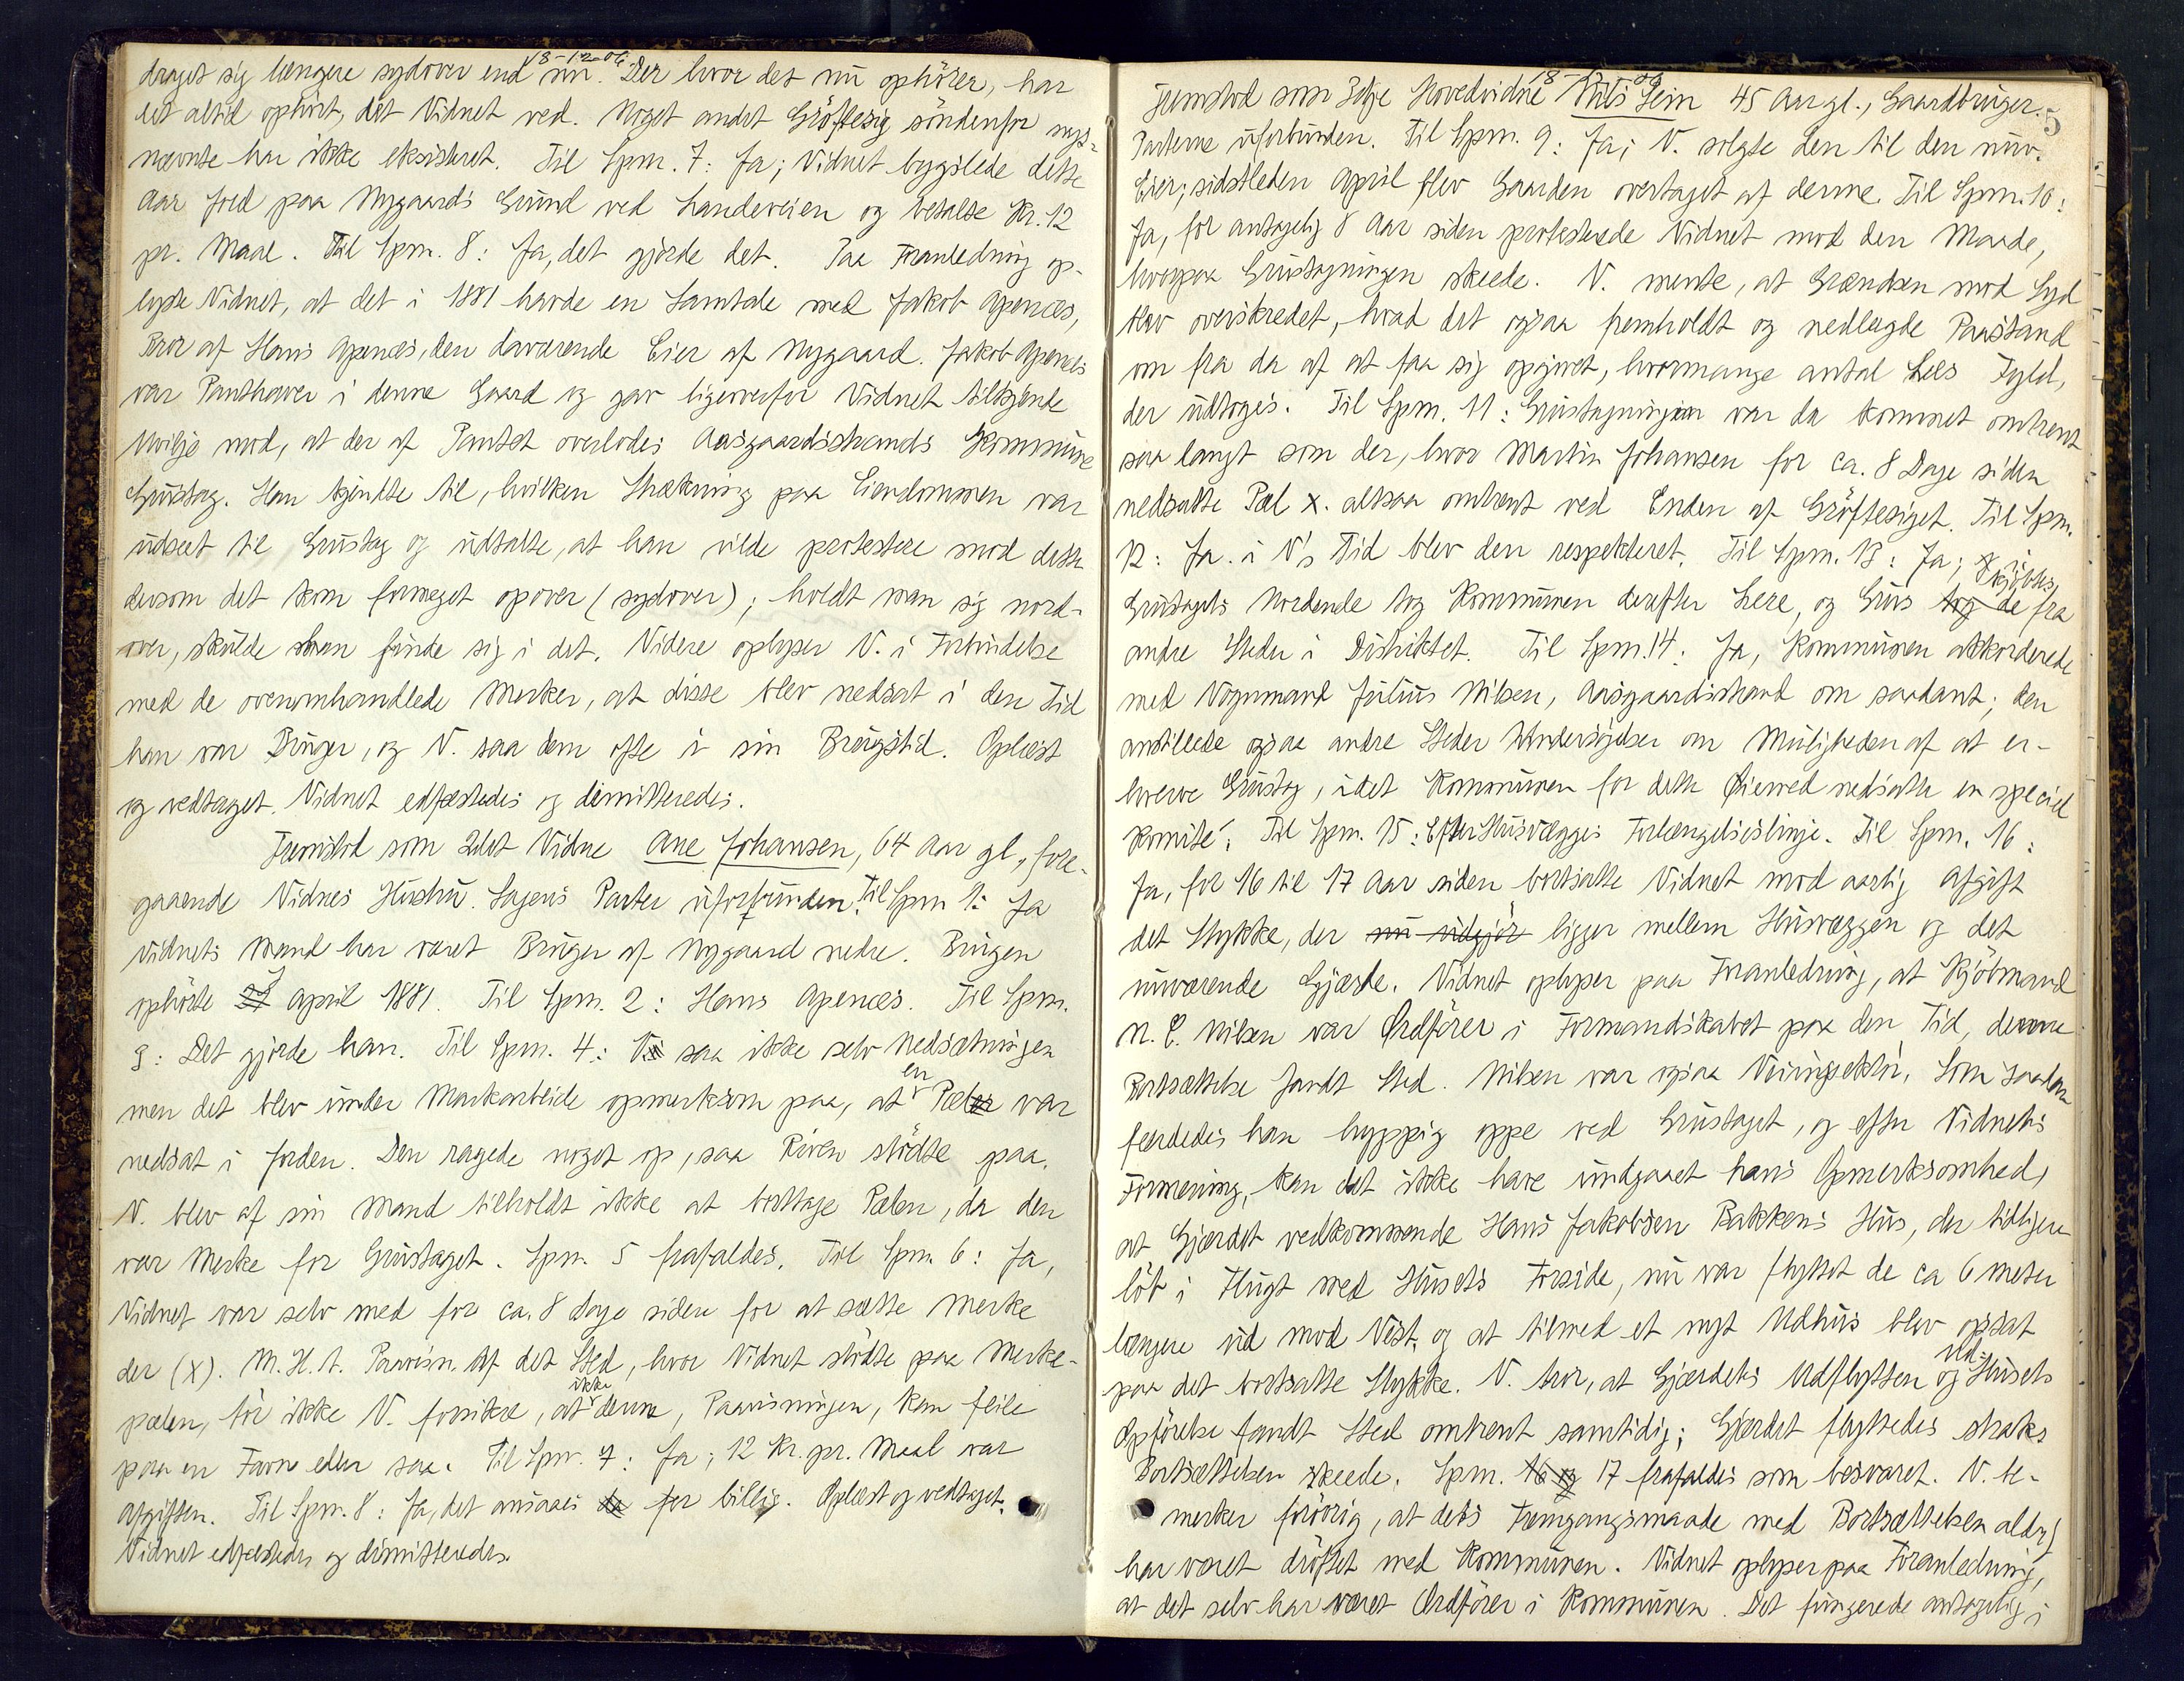 18-12-06.
draget sig længere sydover end nu. Der hvor det nu ophörer, har
det altid ophört, det Vidnet ved. Noget andet Gröftesig söndenfor nys-
nævnte har ikke eksisteret. Til Spm. 7: Ja; Vidnet bygslede dette
Aar Jord paa Nygaards Grund ved Landeveien og betalte Kr. 12
pr. Maal. Til Spm. 8: Ja, det gjorde det. Paa Foranledning op-
lyste Vidnet, at det i 1881 havde en Samtale med Jakob Apenæs,
Bror af Hans Apenæs, den daværende Eier af Nygaard. Jakob Apenæs
var Panthaver i denne Gaard og gav ligeoverfor Vidnet tilkjende
Uvilje mod, at der af Pantet overlodes Aasgaardstrands Kommune
Grustag. Han kjendte til, hvilken Strækning paa Eiendommen var
udseet til Grustag og udtalte, at han vilde protestere mod dette
dersom det kom formeget opover (sydover); holdt man sig nord-
over, skulde han finde sig i det. Videre oplyser V. i Forbindelse
med de ovenomhandlede Merker, at disse blev nedsat i den Tid
han var Bruger, og V. saa dem ofte i sin Brugstid. Oplæst
og vedtaget. Vidnet edfæstedes og dimitteredes.
Fremstod som 2det Vidne Ane Johansen, 64 Aar gl., fore-
gaaende Vidnes Hustru. Sagens Parter uforbunden. Til Spm 1: Ja
Vidnets Mand har været Bruger af Nygaard nedre. Brugen
ophörte April 1881. Til Spm. 2: Hans Apenæs. Til Spm.
3: Det gjorde han. Til Spm. 4: V. saa ikke selv Nedsætningen
men det blev under Markarbeide opmerksom paa, at en Pæl var
nedsat i Jorden. Den ragede noget op, saa Riven stödte paa.
V. blev af sin Mand tilholdt ikke at borttage Pælen, da den
var Merke for Grustaget. Spm. 5 frafaldes. Til Spm. 6: Ja,
Vidnet var selv med for ca. 8 Dage siden for at sætte Merke
der (X). M. H. t. Paavisn. Af det Sted, hvor Vidnet stödte paa Merke-
pælen, tör ikke V. forsikre, at ikke denne, Paavisningen, kan feile
paa en Favn eller saa. Til Spm. 7: Ja; 12 Kr. pr. Maal var
Afgiften. Til Spm. 8: Ja, det ansaaes for billig. Oplæst og vedtaget.
Vidnet edfæstedes og dimitteredes.
5
Fremstod som 3dje Hovedvidne Nils Sem 45 Aar gl., Gaardbruger.
Parterne uforbunden. Til Spm. 9: Ja; V. solgte den til den nuv.
Eier; sidstleden April blev Gaarden overtaget af denne. Til Spm. 10:
Ja, for antagelig 8 Aar siden protesterede Vidnet mod den Maade,
hvorpaa Grustagningen skeede. V. mente, at Grændsen mod Syd
blev overskredet, hvad det ogsaa fremholdt og nedlagde Paastand
om fra da af at faa sig opgivet, hvormange antal Læs Fyld,
der udtoges. Til Spm. 11: Grustagningen var da kommet omtrent
saa langt som der, hvor Martin Johansen for ca. 8 Dage siden
nedsatte Pæl x. altsaa omtrent ved Enden af Gröftesiget. Til Spm.
12: Ja. i V's Tid blev den respekteret. Til Spm. 13: Ja; i
Grustagets Nordende tog Kommunen derefter Lere, og Grus kjöbtes fra
andre Steder i Distriktet. Til Spm. 14: Ja, Kommunen akkorderede
med Vognmand Julius Nilsen, Aasgaardstrand om saadant; den
anstillede ogsaa andre Steder Undersögelser om Muligheden af at er-
hverve Grustag, idet Kommunen for dette Øiemed nedsatte en speciel
Komité. Til Spm. 15: Efter Husvægges Forlængelseslinje. Til Spm. 16:
Ja, for 16 til 17 Aar siden bortsatte Vidnet mod aarlig Afgift
det Stykke, der nu udgjör ligger mellem Husvæggen og det
nuværende Gjærde. Vidnet oplyser paa Foranledning, at Kjöbmand
N. C. Nilsen var Ordförer i Formandskabet paa den Tid, denne
Bortsættelse fandt Sted. Nilsen var ogsaa Veiinspektör. Som saadan
færdedes han hyppig oppe ved Grustaget, og efter Vidnets
Formening, kan det ikke have undgaaet hans Opmerksomhed,
at Gjærdet vedkommende Hans Jakobsen Bakkens Hus, der tidligere
löb i Flugt med Husets Forside, nu var flyttet de ca 6 meter
længere ud mod Vest, og at tilmed et nyt Udhus blev opsat
paa det bortsatte Stykke. V. tror, at Gjærdets Udflytten og Ud-Husets
Opförelse fandt Sted omtrent samtidig; Gjærdet flyttedes straks
Bortsættelsen skeede. Spm. 16 og 17 frafaldes som besvaret. V. be-
merker forövrig, at dets Fremgangsmaade med Bortsættelsen aldrig
har været dröftet med Kommunen. Vidnet oplyser paa Foranledning,
at det selv har været Ordförer i Kommunen. Det fungerede antagelig i